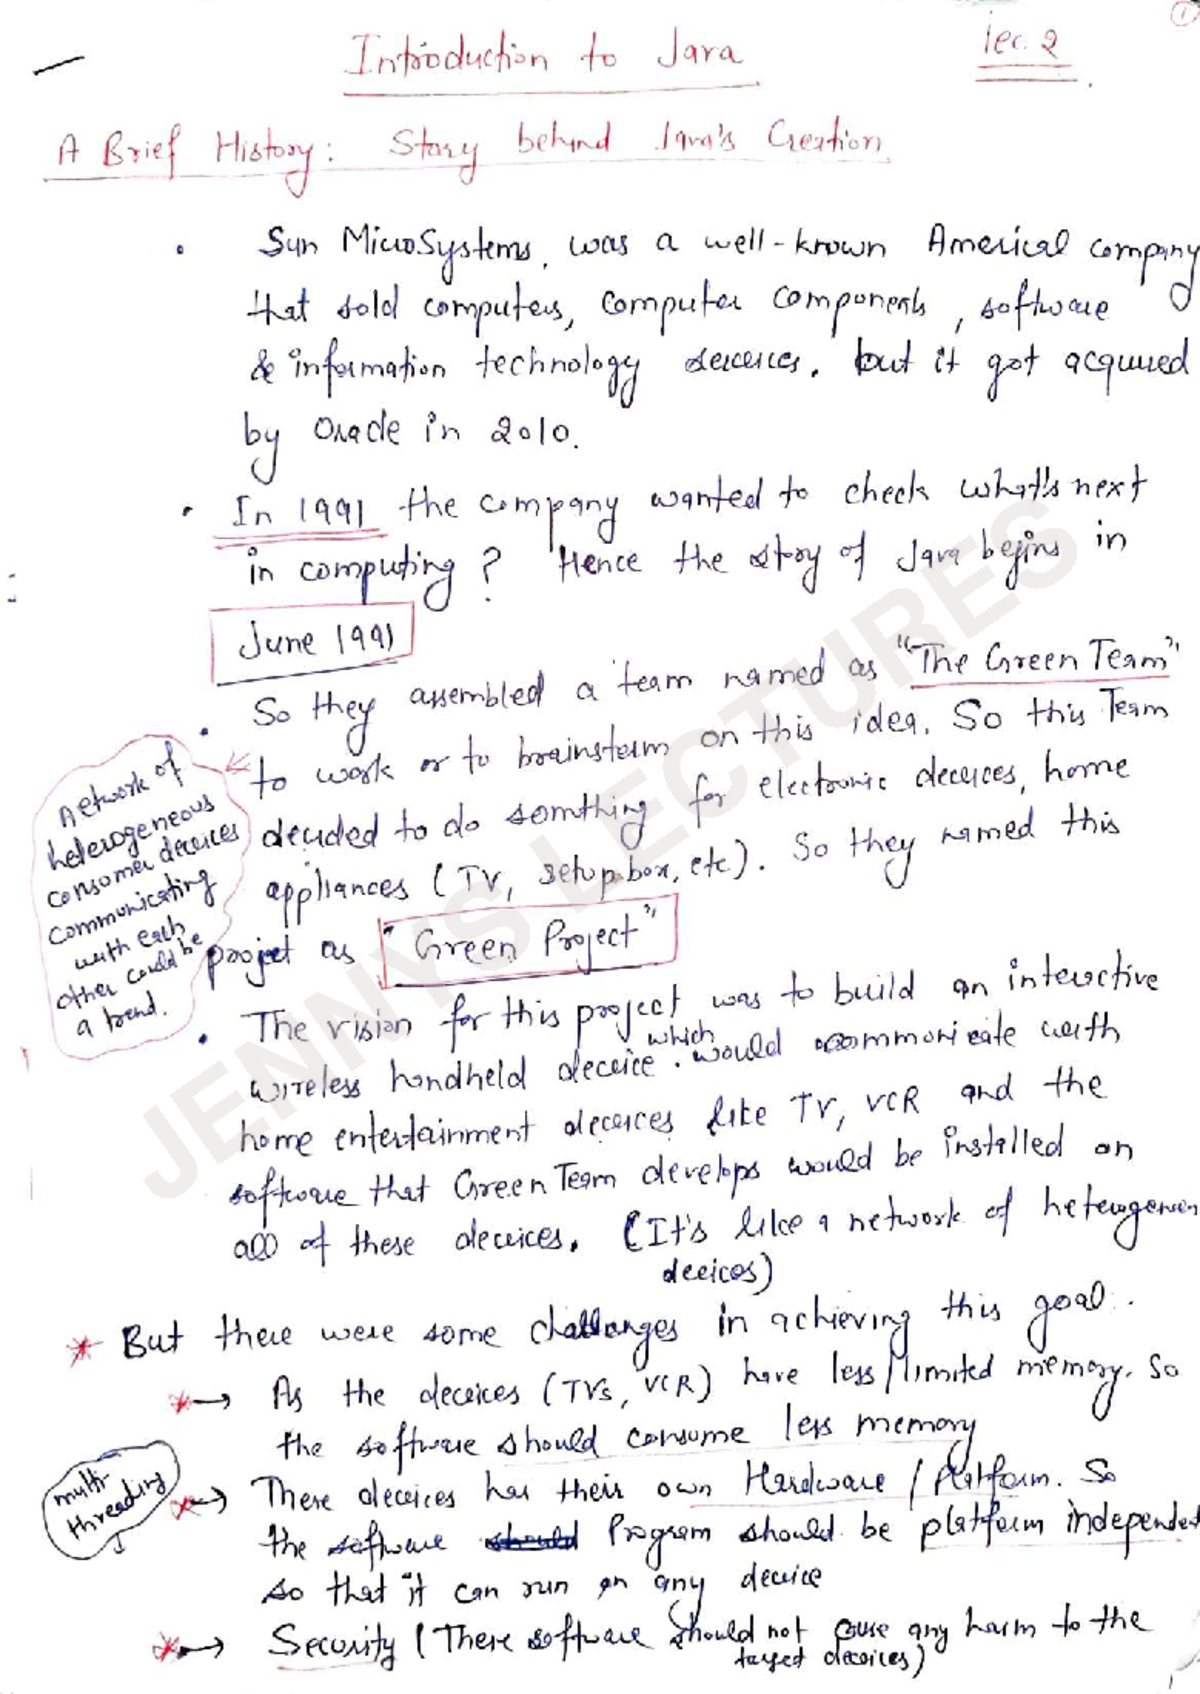 1
Introduction to Java
lec. 2
A Brief History: Story behind Java's Creation
• Sun MicroSystems, was a well-known Americal company
that sold computers, computer components, software
& information technology services. but it got acquired
by Oracle in 2010.
• In 1991 the company wanted to check what's next
in computing? Hence the story of Java begins in
June 1991
• So they assembled a team named as "The Green Team"
to work or to brainstorm on this idea. So this Team
decided to do somthing for electronic devices, home
appliances (TV, setup box, etc). So they named this
project as "Green Project"
Network of
heterogeneous
consumer devices
communicating
with each
other could be
a trend.
• The vision for this project was to build an interactive
wireless handheld device. which would communicate with
home entertainment devices like TV, VCR and the
software that Green Team develops would be installed on
all of these devices. (It's like a network of heterogenous
devices)
* But there were some challenges in achieving this goal.
*→ As the devices (TVs, VCR) have less/limited memory. So
the software should consume less memory
multi-
threading
*→ These devices has their own Hardware / Platform. So
the software should Program should be platform independent
so that it can run on any device
*→ Security (These software should not cause any harm to the
target devices)
JENNYS LECTURES